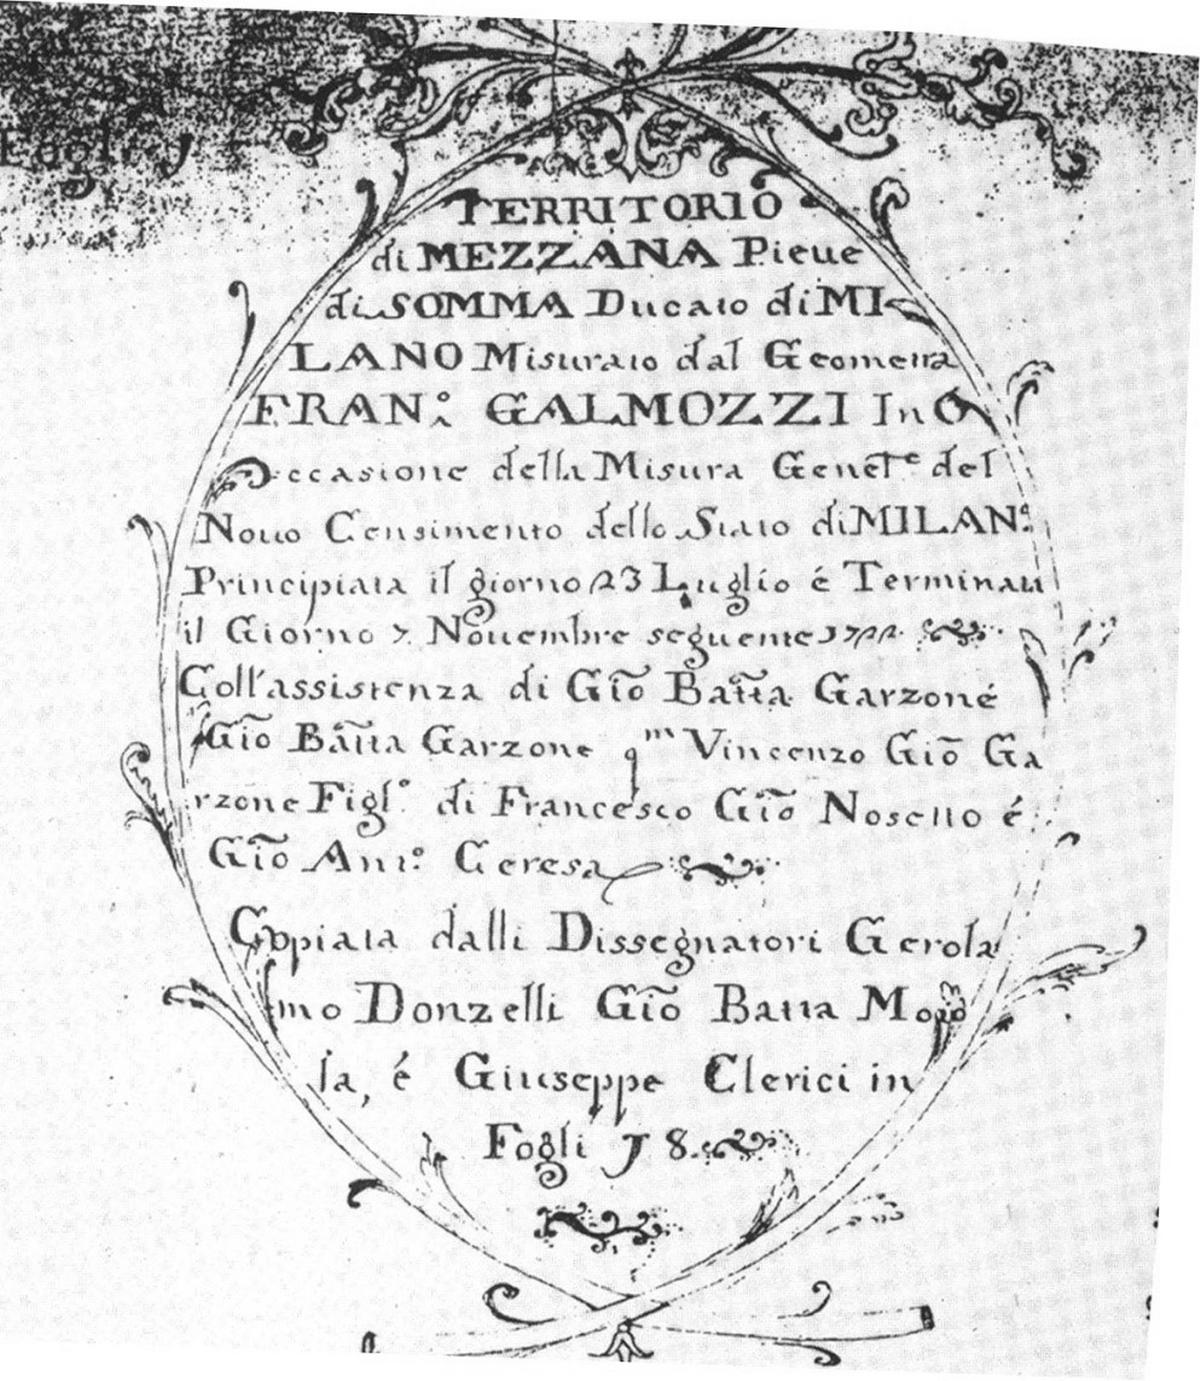 Fogli
TERRITORIO
di MEZZANA Pieue
di SOMMA Ducato di MI
LANO Misurato dal Geometra
FRAN.º GALMOZZI In O
ccasione della Misura Genel.e del
Nouo Censimento dello Stato di MILANº
Principiata il giorno 23 Luglio é Terminata
il Giorno 7. Nouembre seguente 1722.
Coll'assistenza di Gio͂ Batt͂a Garzoné
Gio͂ Batt͂a Garzone qm Vincenzo Gio͂ Ga
rzone Figl.º di Francesco Gio͂ Nosetto é
Gio͂ Ant.º Ceresa
Coppiata dalli Dissegnatori Gerola
mo Donzelli Gio͂ Batta Mojo
la, é Giuseppe Clerici in
Fogli 18.